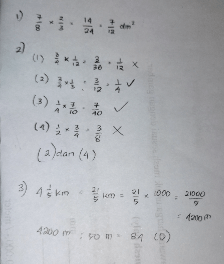 1) 7/8 × 2/3 = 14/24 = 7/12 dm²
2)
(1) 3/4 × 1/12 = 3/36 = 1/12 ×
(2) 3/4 × 1/3 = 3/12 = 1/4 ✓
(3) 1/4 × 7/10 = 7/40 ✓
(4) 1/2 × 3/4 = 3/8 ×
(2) dan (4)
3) 4 1/5 km = 21/5 km = 21/5 × 1000 = 21000/5
= 4200 m
4200 m : 50 m = 84 (D)